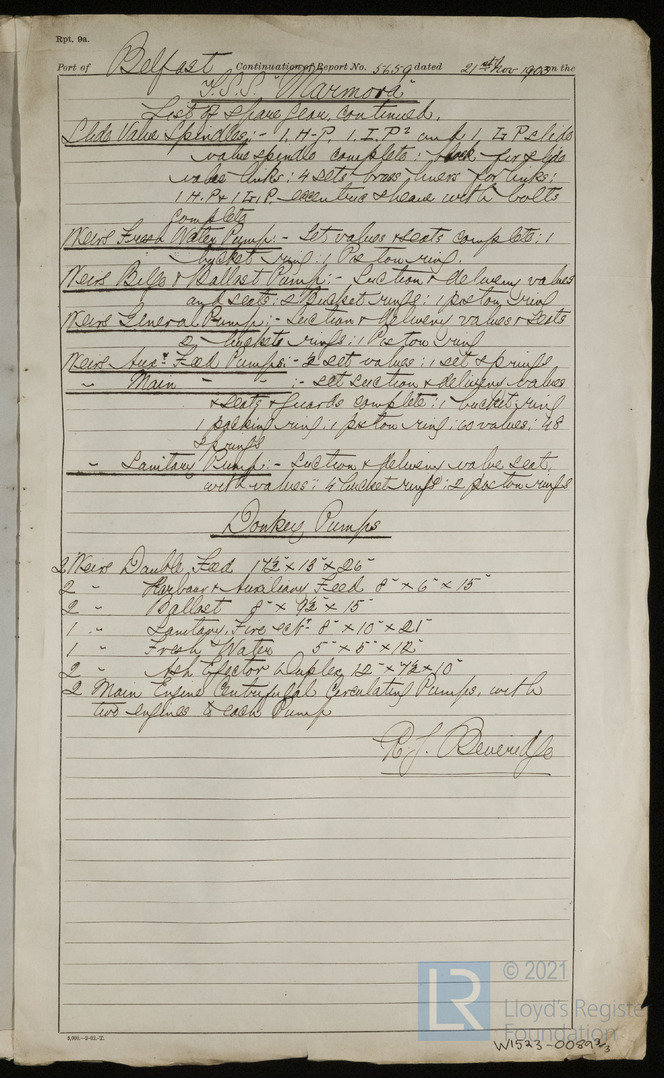 Rpt. 9a.
Port of Belfast Continuation of Report No. 5659 dated 21st Nov 1903 on the
T.S.S. "Marmora"
List of spare gear, continued.
Slide Valve Spindles:- 1 H.P, 1 I.P² and 1 L P slide
valve spindle complete: for slide
valve links: 4 sets brass liners for links:
1 H.P & 1 L.P. eccentric sheave with bolts
complete
Weirs Fresh Water Pump:- Set valves & seats complete: 1
bucket ring: 1 Piston ring.
Weirs Bilge & Ballast Pump:- Suction & delivery valves
and seats: 2 Bucket rings: 1 piston ring
Weirs General Pump:- Suction & delivery valves & seats
2 buckets rings: 1 Piston ring
Weirs Auxy Feed Pumps:- 2 set valves: 1 set springs
" Main " " :- set suction & delivery valves
& seats & guards complete: 1 bucket ring
1 packing ring: 1 piston ring: 60 valves: 48
springs
" Sanitary Pump:- Suction & delivery valve seat,
with valves: 4 bucket rings: 2 piston rings
Donkey Pumps
2 Weirs Double Feed 17½" x 13" x 26"
2 " Harbour & Auxiliary Feed 8" x 6" x 15"
2 " Ballast 8" x 9½" x 15"
1 " Sanitary, Fire 8" x 10" x 21"
1 " Fresh Water 5" x 5" x 12"
2 " Ash Ejector Duplex 12" x 7½" x 10"
2 Main Engine Centrifugal Circulating Pumps, with
two engines to each Pump
R. J. Beveridge
5,000.—2-02.-T.
LR
© 2021
Lloyd's Register
Foundation
W1523-0089 2/3